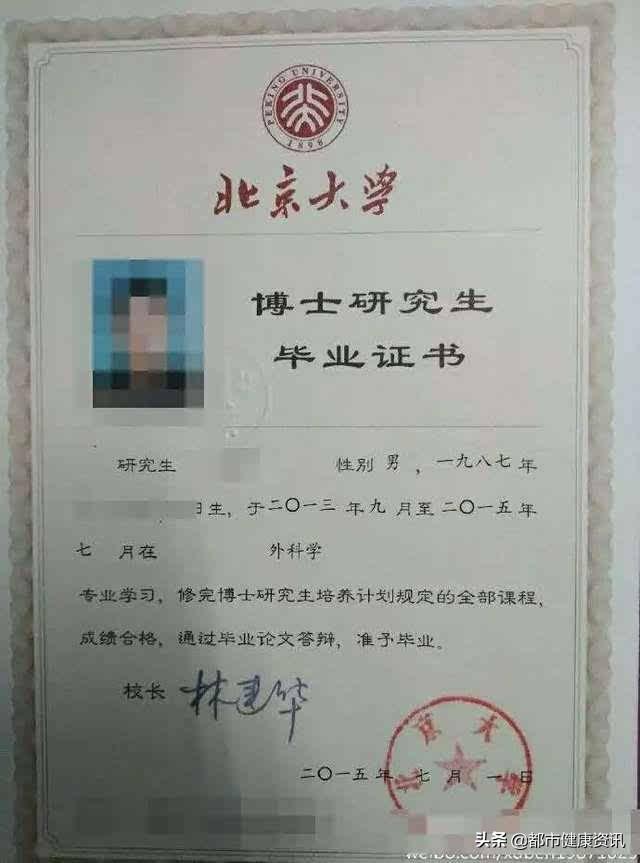 PEKING UNIVERSITY
1898
北京大学
博士研究生
毕业证书
研究生 性别 男 ，一九八七 年
日生，于二〇一三 年 九 月至 二〇一五 年
七 月在 外科学
专业学习，修完博士研究生培养计划规定的全部课程，
成绩合格，通过毕业论文答辩，准予毕业。
校长 林建华
北京大学
二〇一五 年 七 月 一 日
头条 @都市健康资讯